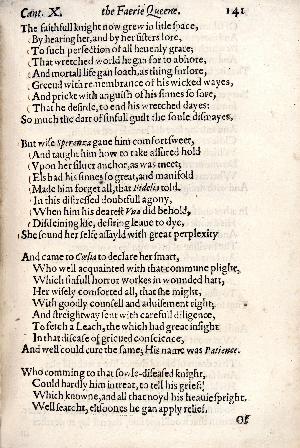 Cant. X. the Faerie Queene. 141
The faithfull knight now grew in litle space,
By hearing her, and by her sisters lore,
To such perfection of all heuenly grace,
That wretched world he gan for to abhore,
And mortall life gan loath, as thing forlore,
Greeud with remembrance of his wicked wayes,
And prickt with anguish of his sinnes so sore,
That he desirde, to end his wretched dayes:
So much the dart of sinfull guilt the soule dismayes.
But wise Speranza gaue him comfort sweet,
And taught him how to take assured hold
Vpon her siluer anchor, as was meet;
Els had his sinnes so great, and manifold
Made him forget all, that Fidelia told.
In this distressed doubtfull agony,
When him his dearest Vna did behold,
Disdeining life, desiring leaue to dye,
She found her selfe assayld with great perplexity.
And came to Cælia to declare her smart,
Who well acquainted with that commune plight,
Which sinfull horror workes in wounded hart,
Her wisely comforted all, that she might,
With goodly counsell and aduisement right;
And streightway sent with carefull diligence,
To fetch a Leach, the which had great insight
In that disease of grieued conscience,
And well could cure the same; His name was Patience.
Who comming to that soule-diseased knight,
Could hardly him intreat, to tell his grief:
Which knowne, and all that noyd his heauie spright,
Well searcht, eftsoones he gan apply relief
Of